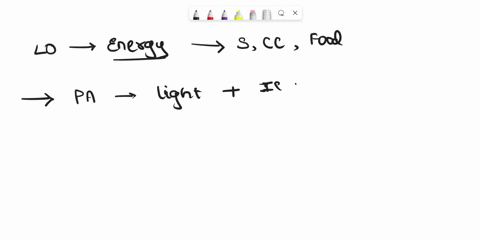 LO → Energy → S, CC, Food
→ PA → light + IC